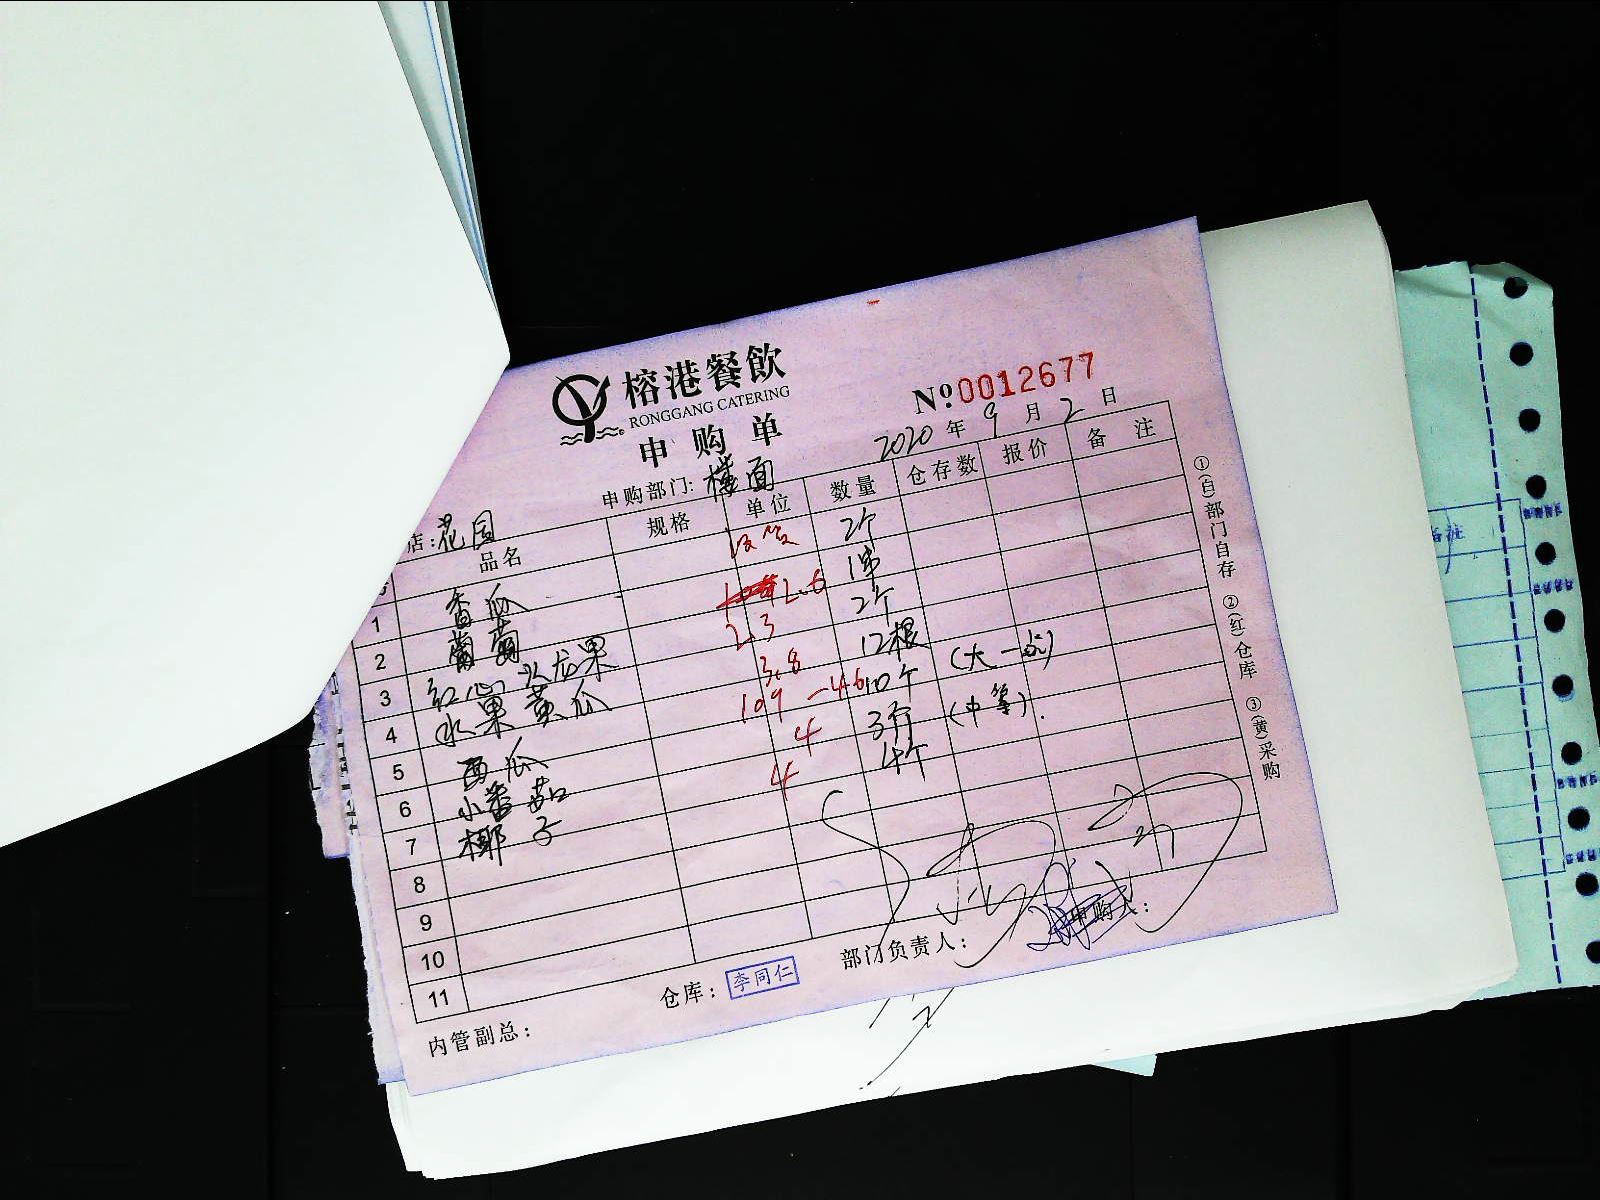 榕港餐飲
RONGGANG CATERING
申购单
№0012677
2020年9月2日
店:花园
申购部门:楼面
品名 规格 单位 数量 仓存数 报价 备注
1 香瓜 2个
2 葡萄 2.6 1串
3 红心火龙果 2.3 2个
4 水果黄瓜 3.8 12根
5 西瓜 109 -46 10个 (大一点)
6 小番茄 4 3斤 (中等).
7 椰子 4 4个
8
9
10
11
①(白)部门自存 ②(红)仓库 ③(黄)采购
内管副总:
仓库:李同仁
部门负责人:
申购人:
备注